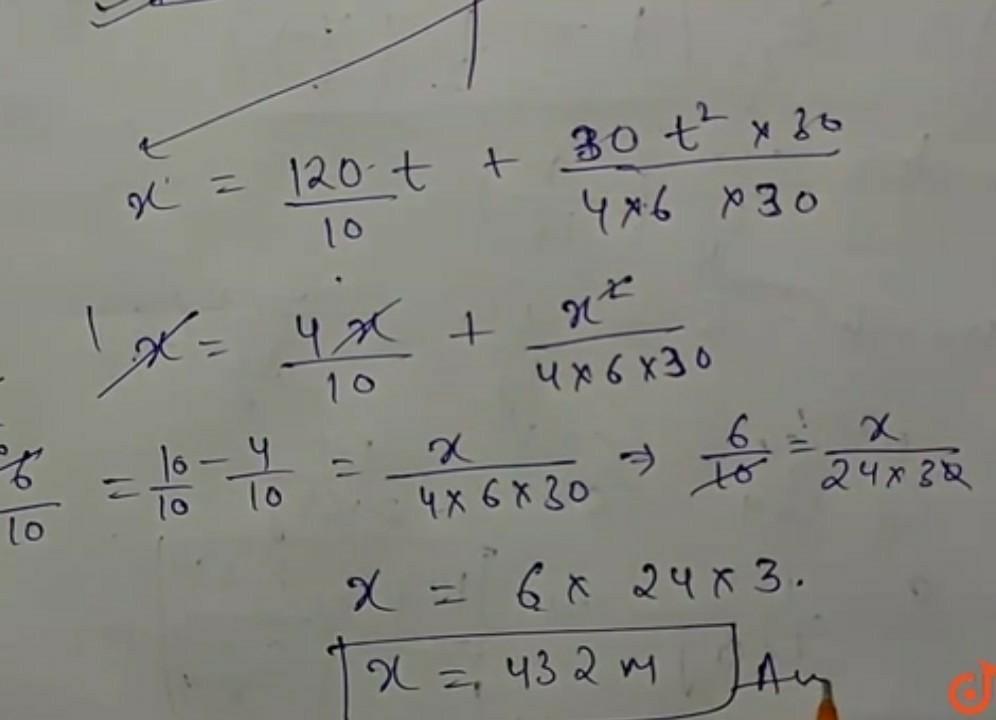 x = 120 t / 10 + 30 t² × 30 / 4×6 ×30
1 x = 4x / 10 + x² / 4×6×30
6/10 = 10/10 - 4/10 = x / 4×6×30 ⇒ 6/10 = x / 24×30
x = 6 × 24×3.
x = 432 m Ans